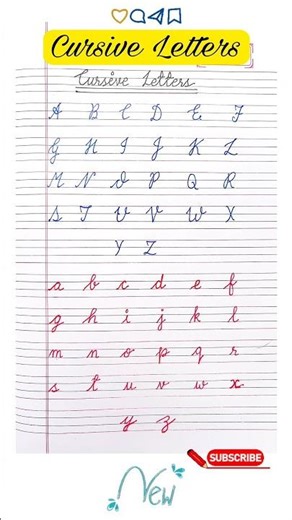 Cursive Letters
Cursive Letters
A B C D E F
G H I J K L
M N O P Q R
S T U V W X
Y Z
a b c d e f
g h i j k l
m n o p q r
s t u v w x
y z
SUBSCRIBE
New